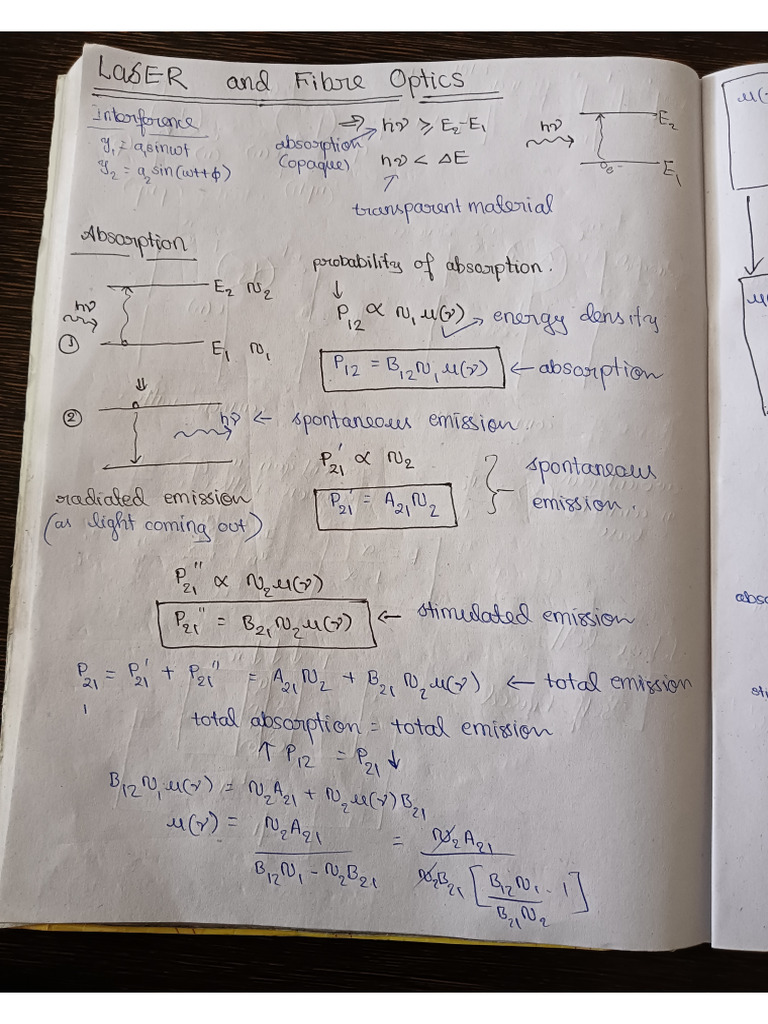 LASER and Fibre Optics
Interference
y₁ = a₁sinωt
y₂ = a₂sin(ωt+ϕ)
absorption (opaque)
⇒ hν ≥ E₂-E₁
hν < ΔE
transparent material
hν
E₂
E₁
Absorption
E₂ N₂
hν
①
E₁ N₁
probability of absorption.
↓
P₁₂ ∝ N₁ u(ν) → energy density
P₁₂ = B₁₂N₁u(ν) ← absorption
②
hν ← spontaneous emission
radiated emission
(as light coming out)
P₂₁' ∝ N₂
P₂₁' = A₂₁N₂
spontaneous
emission.
P₂₁'' ∝ N₂u(ν)
P₂₁'' = B₂₁N₂u(ν) ← stimulated emission
P₂₁ = P₂₁' + P₂₁'' = A₂₁N₂ + B₂₁N₂u(ν) ← total emission
total absorption = total emission
↑ P₁₂ = P₂₁ ↓
B₁₂N₁u(ν) = N₂A₂₁ + N₂u(ν)B₂₁
u(ν) = N₂A₂₁ / (B₁₂N₁ - N₂B₂₁) = N₂A₂₁ / (N₂B₂₁ [B₁₂N₁ / B₂₁N₂ - 1])